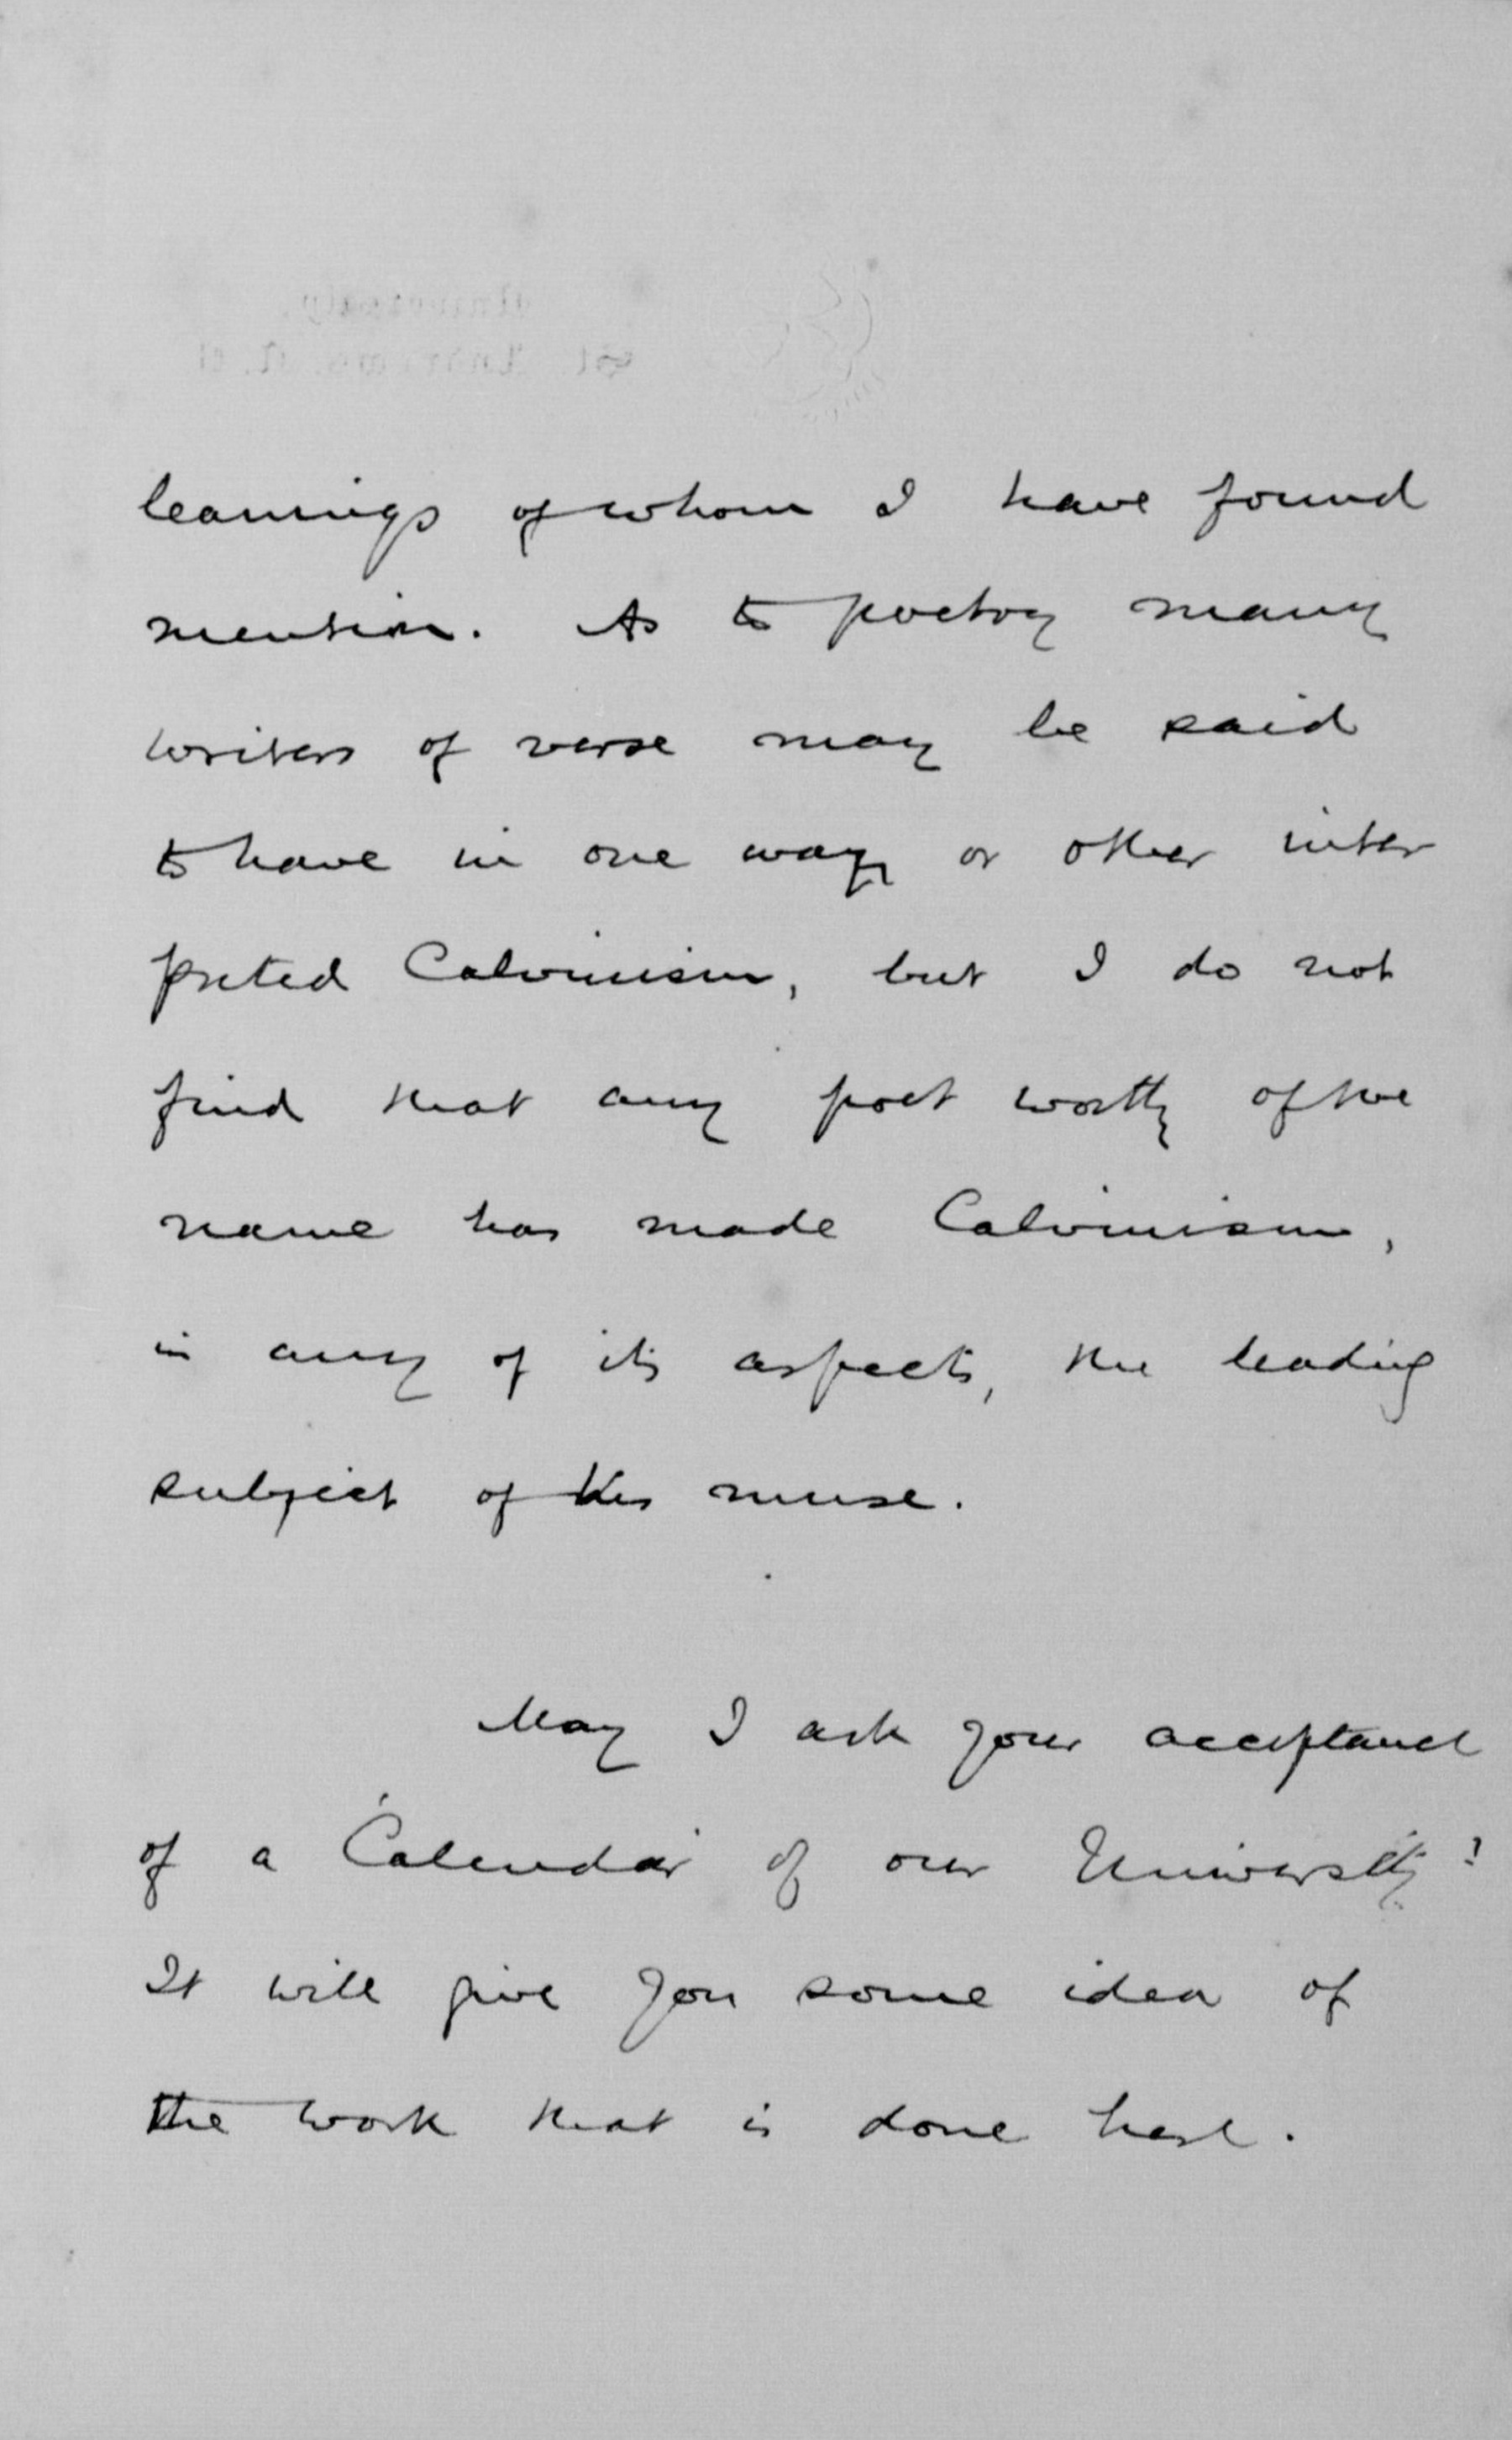 leanings of whom I have found
mention. As to poetry many
writers of verse may be said
to have in one way or other inter
preted Calvinism, but I do not
find that any poet worthy of the
name has made Calvinism,
in any of its aspects, the leading
subject of his muse.
May I ask your acceptance
of a Calendar of our University?
It will give you some idea of
the work that is done here.